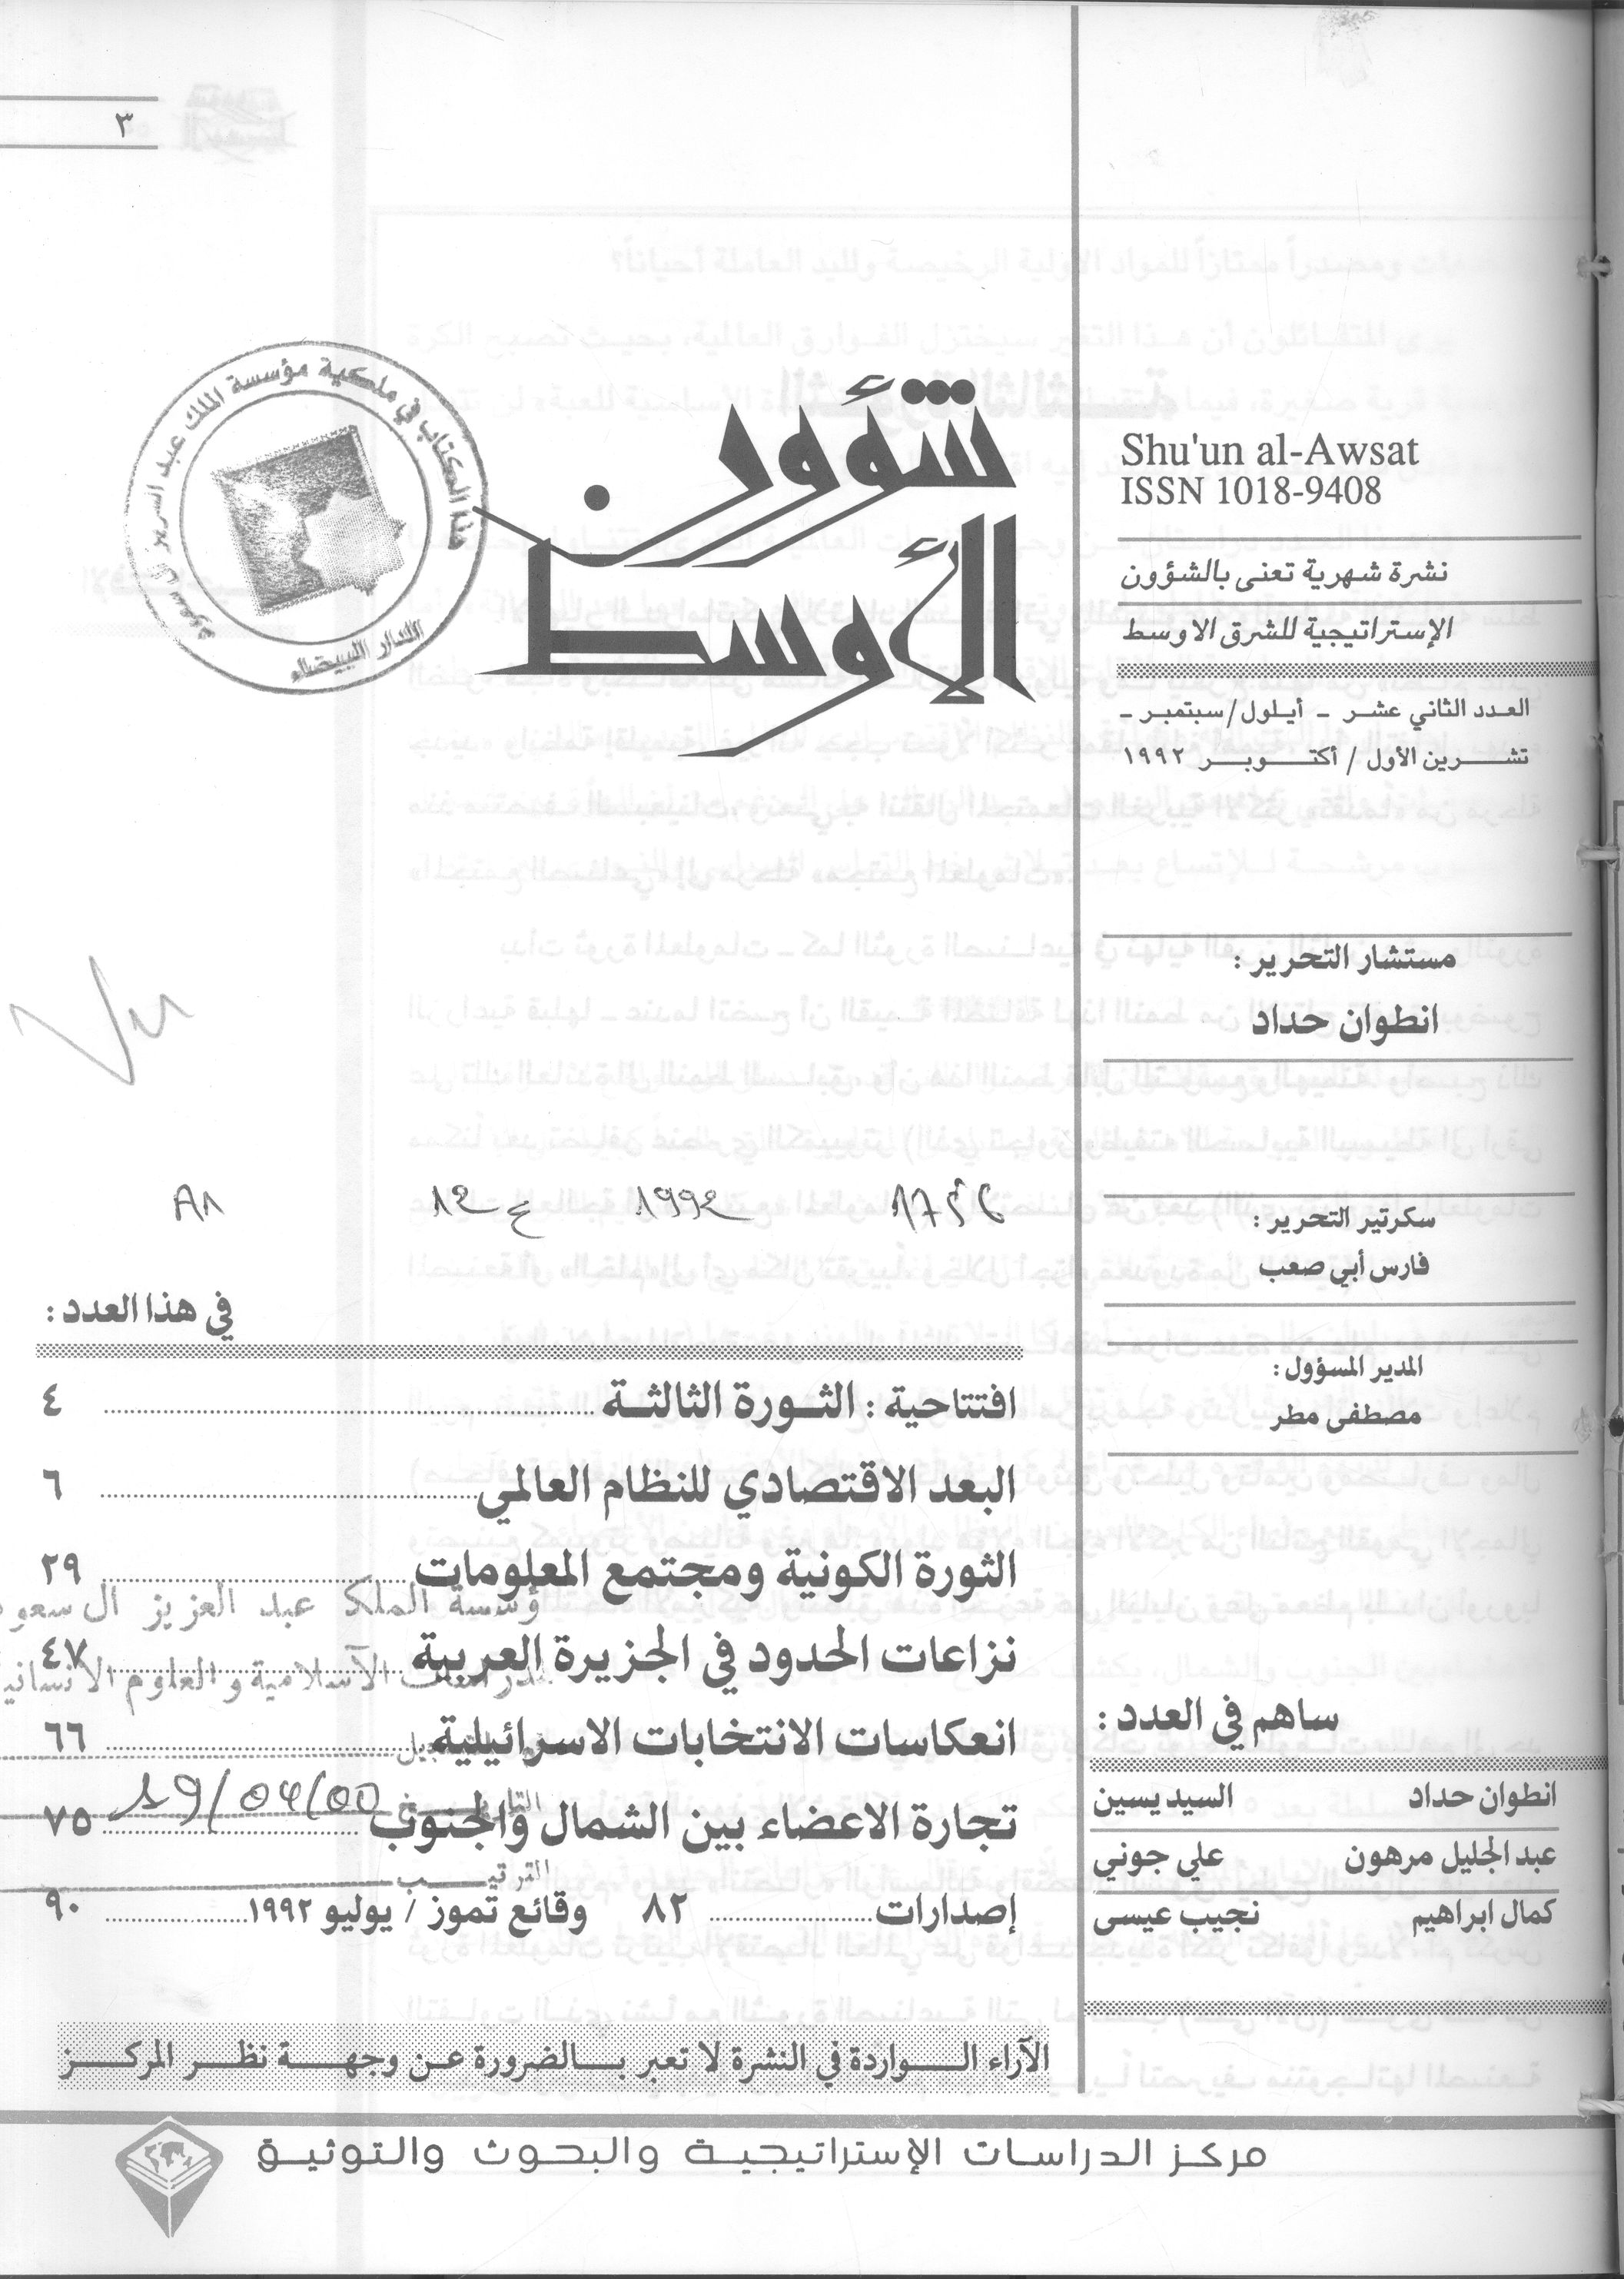 ٣
شؤون
الأوسط
Shu'un al-Awsat
ISSN 1018-9408
نشرة شهرية تعنى بالشؤون
الإستراتيجية للشرق الاوسط
العدد الثاني عشر - أيلول/سبتمبر -
تشرين الأول / أكتوبر ١٩٩٢
هذا الكتاب في ملكية مؤسسة الملك عبد العزيز آل سعود
الدار البيضاء
مستشار التحرير :
انطوان حداد
سكرتير التحرير :
فارس أبي صعب
المدير المسؤول :
مصطفى مطر
ساهم في العدد :
انطوان حداد السيد يسين
عبد الجليل مرهون علي جوني
كمال ابراهيم نجيب عيسى
1992 ع 12
في هذا العدد :
افتتاحية : الثورة الثالثة ........ ٤
البعد الاقتصادي للنظام العالمي ........ ٦
الثورة الكونية ومجتمع المعلومات ........ ٢٩
نزاعات الحدود في الجزيرة العربية ........ ٤٧
انعكاسات الانتخابات الاسرائيلية ........ ٦٦
تجارة الاعضاء بين الشمال والجنوب ........ ٧٥
إصدارات ........ ٨٢ وقائع تموز / يوليو ١٩٩٢ ........ ٩٠
الملك عبد العزيز ال سعود
الاسلامية و العلوم الانسانية
19/04/00
الترتيب
الآراء الواردة في النشرة لا تعبر بالضرورة عن وجهة نظر المركز
مركز الدراسات الإستراتيجية والبحوث والتوثيق